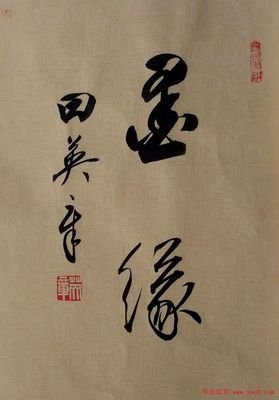 墨缘
田英章
书法欣赏 www.yac8.com